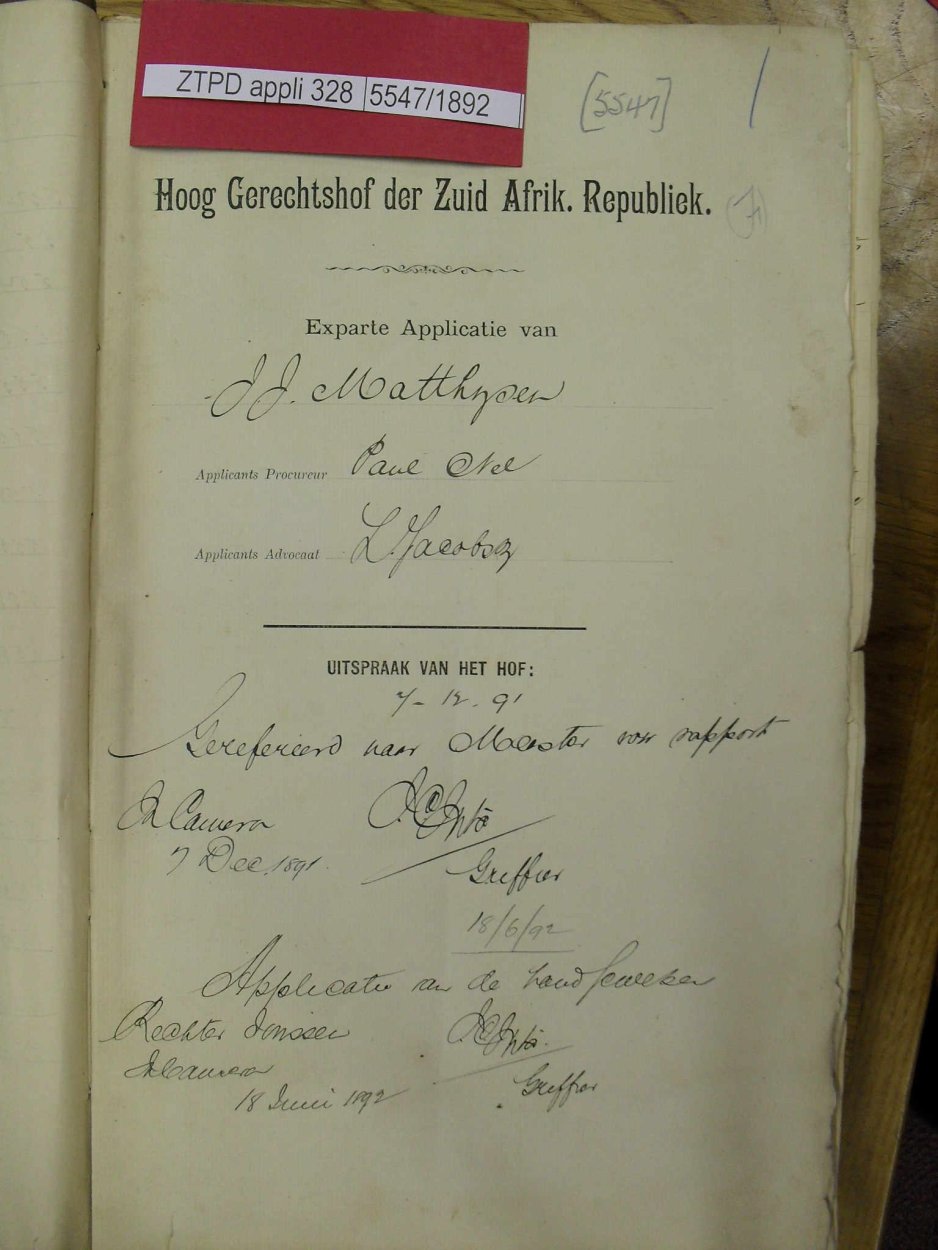 ZTPD appli 328 5547/1892
[5547]
Hoog Gerechtshof der Zuid Afrik. Republiek.
Exparte Applicatie van
J J. Matthysen
Applicants Procureur Paul Nel
Applicants Advocaat L. Jacobsz
UITSPRAAK VAN HET HOF:
7 - 12 - 91
Gerefereerd naar Meester voor rapport
In Camera
7 Dec. 1891.
Griffier
18/6/92
Applicatie van de hand gewezen
Rechter
In Camera
18 Juni 1892
Griffier